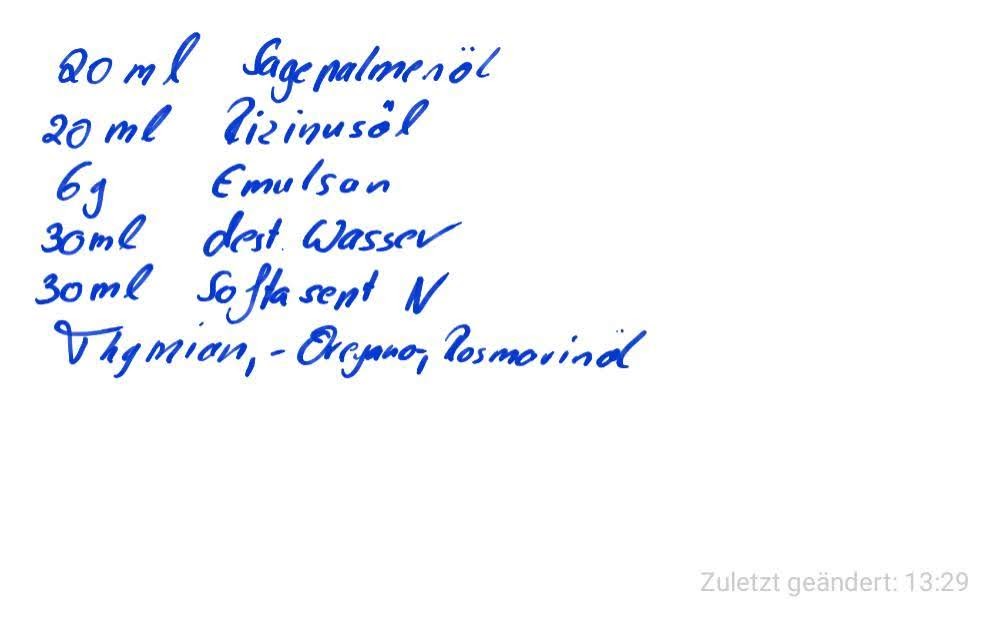 20 ml Sagepalmenöl
20 ml Rizinusöl
6g Emulsan
30ml dest. Wasser
30ml Softasept N
Thymian, - Oregano-, Rosmarinöl
Zuletzt geändert: 13:29